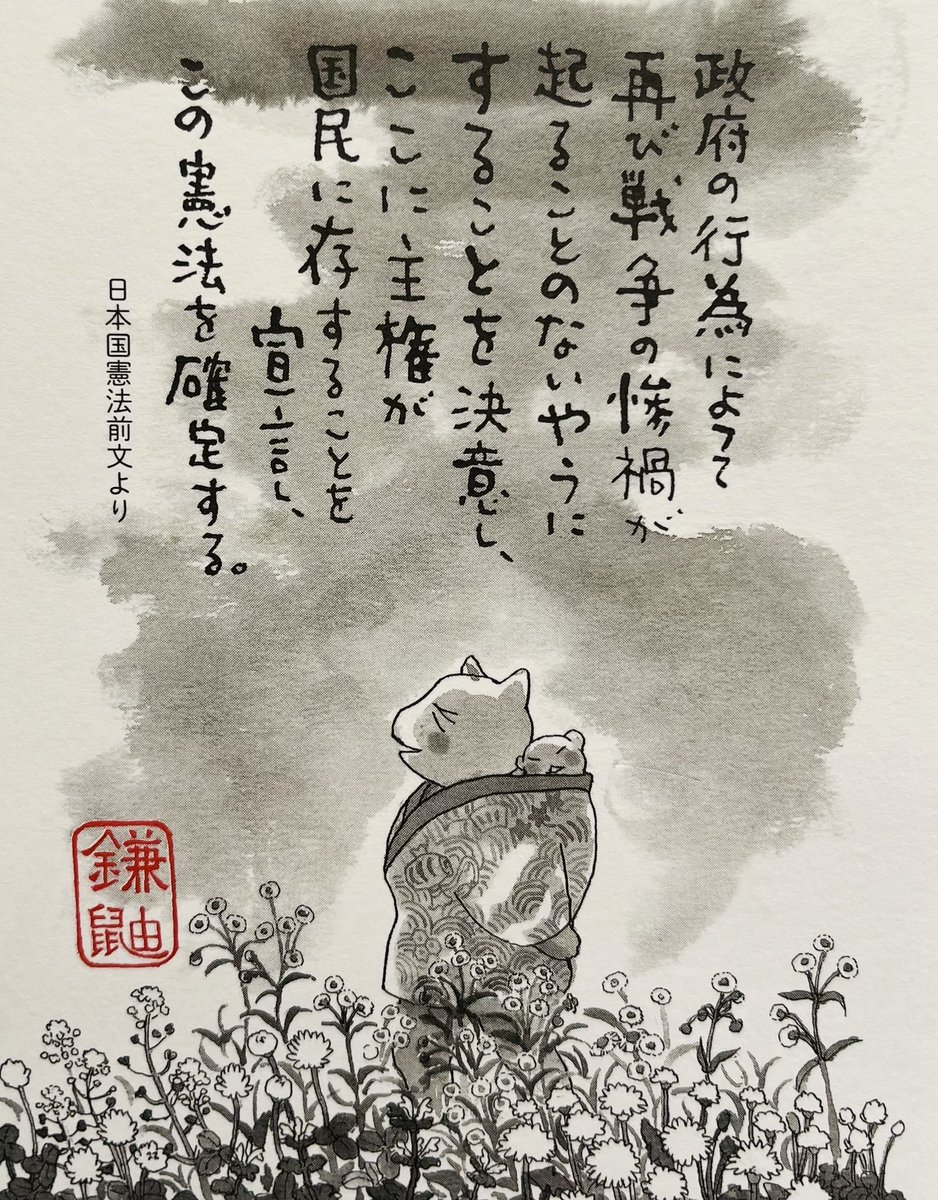 政府の行為によつて
再び戦争の惨禍が
起ることのないやうに
することを決意し、
ここに主権が
国民に存することを
宣言し、
この憲法を確定する。
日本国憲法前文より
鎌鼬